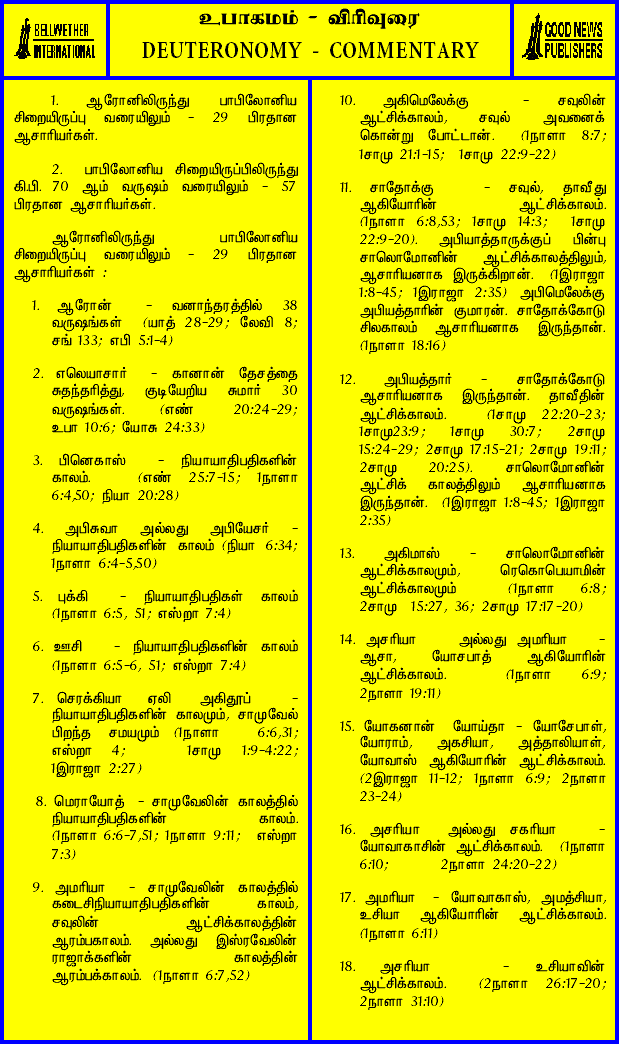 BELLWETHER
INTERNATIONAL
உபாகமம் - விரிவுரை
DEUTERONOMY - COMMENTARY
GOOD NEWS
PUBLISHERS
1. ஆரோனிலிருந்து பாபிலோனிய
சிறையிருப்பு வரையிலும் - 29 பிரதான
ஆசாரியர்கள்.
2. பாபிலோனிய சிறையிருப்பிலிருந்து
கி.பி. 70 ஆம் வருஷம் வரையிலும் - 57
பிரதான ஆசாரியர்கள்.
ஆரோனிலிருந்து பாபிலோனிய
சிறையிருப்பு வரையிலும் - 29 பிரதான
ஆசாரியர்கள் :
1. ஆரோன் - வனாந்தரத்தில் 38
வருஷங்கள் (யாத் 28-29; லேவி 8;
சங் 133; எபி 5:1-4)
2. எலெயாசார் - கானான் தேசத்தை
சுதந்தரித்து, குடியேறிய சுமார் 30
வருஷங்கள். (எண் 20:24-29;
உபா 10:6; யோசு 24:33)
3. பினெகாஸ் - நியாயாதிபதிகளின்
காலம். (எண் 25:7-15; 1நாளா
6:4,50; நியா 20:28)
4. அபிசுவா அல்லது அபியேசர் -
நியாயாதிபதிகளின் காலம் (நியா 6:34;
1நாளா 6:4-5,50)
5. புக்கி - நியாயாதிபதிகள் காலம்
(1நாளா 6:5, 51; எஸ்றா 7:4)
6. ஊசி - நியாயாதிபதிகளின் காலம்
(1நாளா 6:5-6, 51; எஸ்றா 7:4)
7. செரக்கியா ஏலி அகிதூப் -
நியாயாதிபதிகளின் காலமும், சாமுவேல்
பிறந்த சமயமும் (1நாளா 6:6,31;
எஸ்றா 4; 1சாமு 1:9-4:22;
1இராஜா 2:27)
8. மெராயோத் - சாமுவேலின் காலத்தில்
நியாயாதிபதிகளின் காலம்.
(1நாளா 6:6-7,51; 1நாளா 9:11; எஸ்றா
7:3)
9. அமரியா - சாமுவேலின் காலத்தில்
கடைசிநியாயாதிபதிகளின் காலம்,
சவுலின் ஆட்சிக்காலத்தின்
ஆரம்பகாலம். அல்லது இஸ்ரவேலின்
ராஜாக்களின் காலத்தின்
ஆரம்பக்காலம். (1நாளா 6:7,52)
10. அகிமெலேக்கு - சவுலின்
ஆட்சிக்காலம், சவுல் அவனைக்
கொன்று போட்டான். (1நாளா 8:7;
1சாமு 21:1-15; 1சாமு 22:9-22)
11. சாதோக்கு - சவுல், தாவீது
ஆகியோரின் ஆட்சிக்காலம்.
(1நாளா 6:8,53; 1சாமு 14:3; 1சாமு
22:9-20). அபியாத்தாருக்குப் பின்பு
சாலொமோனின் ஆட்சிக்காலத்திலும்,
ஆசாரியனாக இருக்கிறான். (1இராஜா
1:8-45; 1இராஜா 2:35) அபிமெலேக்கு
அபியத்தாரின் குமாரன். சாதோக்கோடு
சிலகாலம் ஆசாரியனாக இருந்தான்.
(1நாளா 18:16)
12. அபியத்தார் - சாதோக்கோடு
ஆசாரியனாக இருந்தான். தாவீதின்
ஆட்சிக்காலம். (1சாமு 22:20-23;
1சாமு23:9; 1சாமு 30:7; 2சாமு
15:24-29; 2சாமு 17:15-21; 2சாமு 19:11;
2சாமு 20:25). சாலொமோனின்
ஆட்சிக் காலத்திலும் ஆசாரியனாக
இருந்தான். (1இராஜா 1:8-45; 1இராஜா
2:35)
13. அகிமாஸ் - சாலொமோனின்
ஆட்சிக்காலமும், ரெகொபெயாமின்
ஆட்சிக்காலமும் (1நாளா 6:8;
2சாமு 15:27, 36; 2சாமு 17:17-20)
14. அசரியா அல்லது அமரியா -
ஆசா, யோசபாத் ஆகியோரின்
ஆட்சிக்காலம். (1நாளா 6:9;
2நாளா 19:11)
15. யோகனான் யோய்தா - யோசேபாள்,
யோராம், அகசியா, அத்தாலியாள்,
யோவாஸ் ஆகியோரின் ஆட்சிக்காலம்.
(2இராஜா 11-12; 1நாளா 6:9; 2நாளா
23-24)
16. அசரியா அல்லது சகரியா -
யோவாகாசின் ஆட்சிக்காலம். (1நாளா
6:10; 2நாளா 24:20-22)
17. அமரியா - யோவாகாஸ், அமத்சியா,
உசியா ஆகியோரின் ஆட்சிக்காலம்.
(1நாளா 6:11)
18. அசரியா - உசியாவின்
ஆட்சிக்காலம். (2நாளா 26:17-20;
2நாளா 31:10)